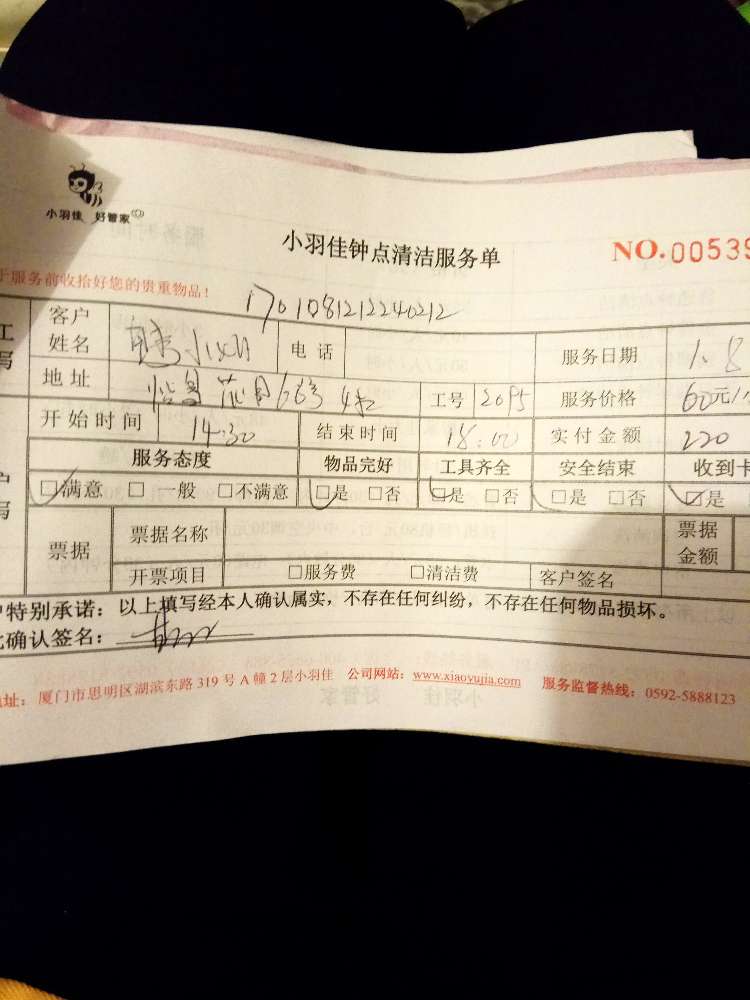 小羽佳 好管家
小羽佳钟点清洁服务单 NO.00539
于服务前收拾好您的贵重物品！
1701081212240212
工 客户姓名 电话 服务日期 1.8
写 地址 66号 工号 2095 服务价格 60元/
开始时间 14:30 结束时间 18:00 实付金额 220
服务态度 物品完好 工具齐全 安全结束 收到卡
户 □满意 □一般 □不满意 □是 □否 □是 □否 □是 □否 □是
写 票据 票据名称 票据金额
开票项目 □服务费 □清洁费 客户签名
户特别承诺：以上填写经本人确认属实，不存在任何纠纷，不存在任何物品损坏。
此确认签名：
地址：厦门市思明区湖滨东路319号A幢2层小羽佳 公司网站：www.xiaoyujia.com 服务监督热线：0592-5888123